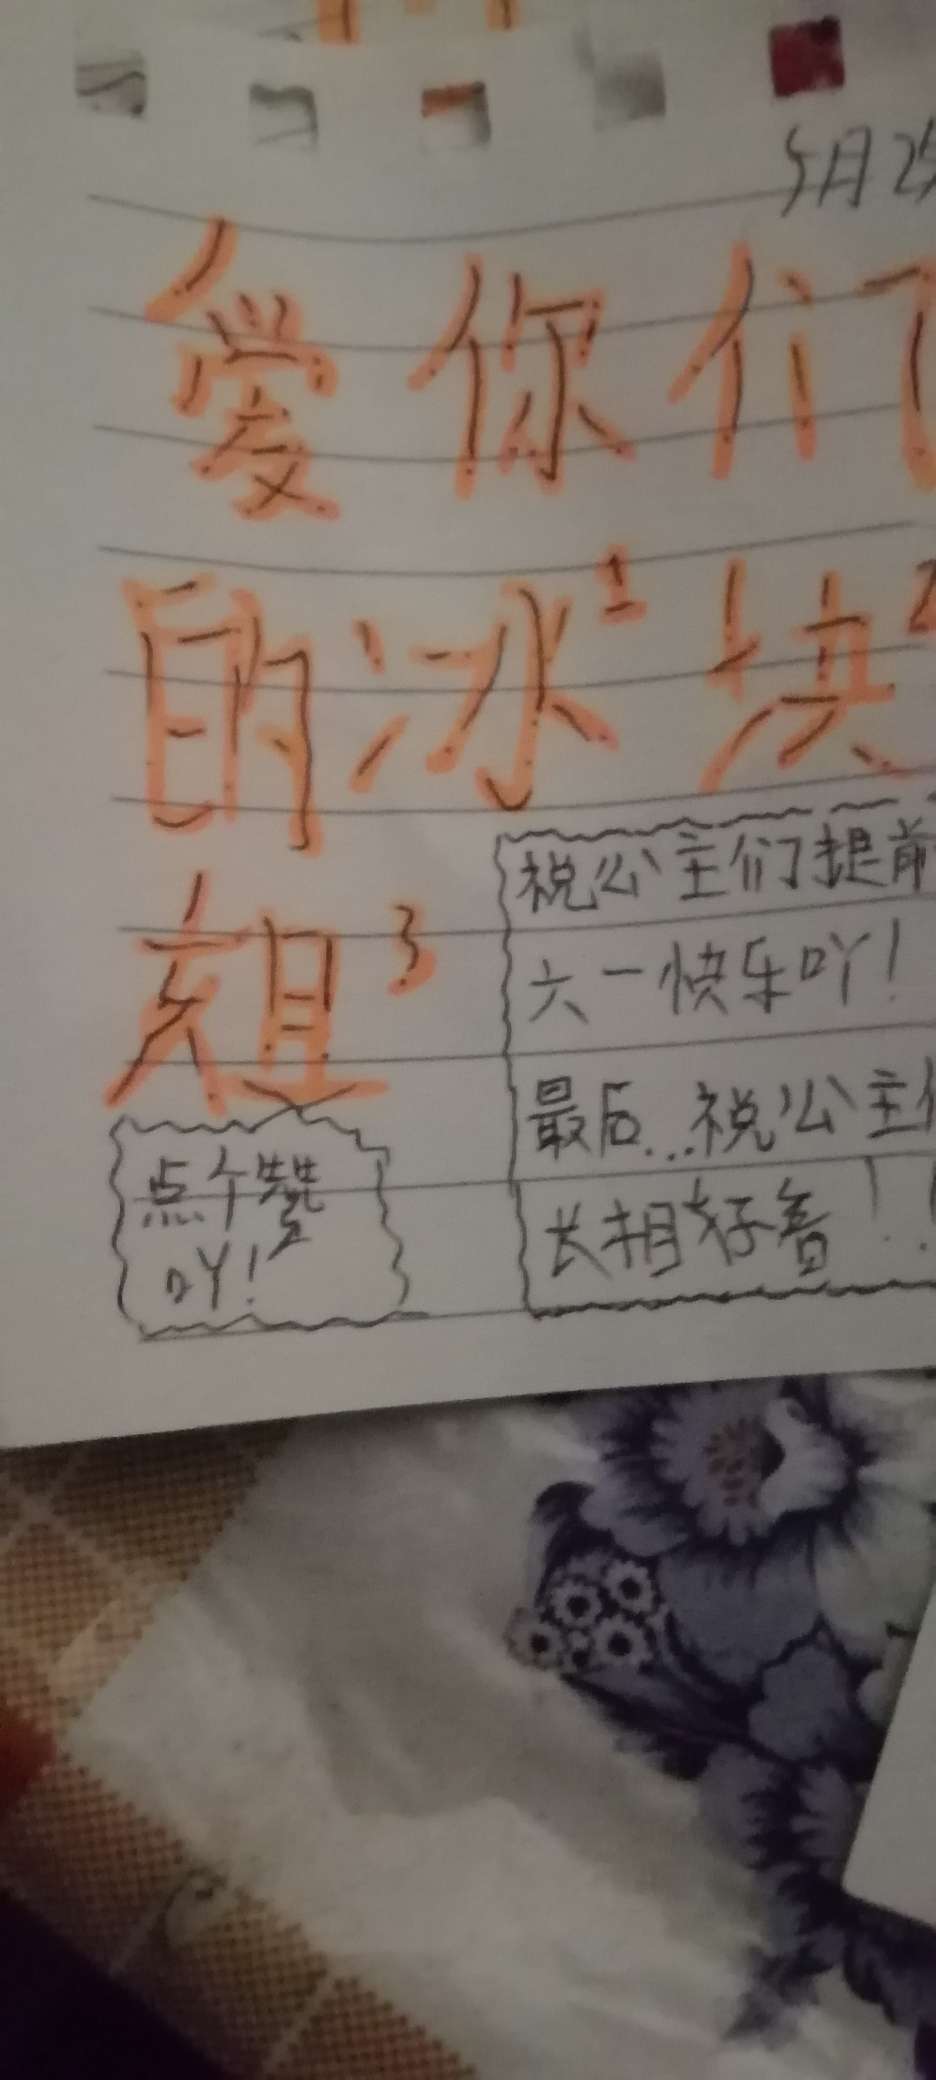 5月25
爱你们
的冰¹块²
超³
祝公主们提前
六一快乐吖!
最后...祝公主们
长相好看!!
点个赞
吖!